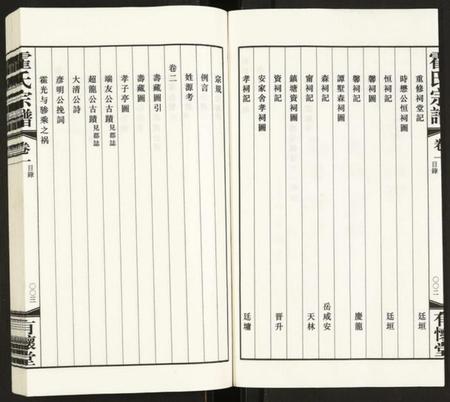 霍氏宗譜
卷一
目錄
〇〇二
有懷堂
重修祠堂記 廷垣
時懋公恒祠圖
恒祠記 廷垣
馨祠圖
馨祠記 慶龍
譚墅森祠圖
森祠記 岳咸安
甯祠記 天林
鎮塘資祠圖
資祠記 晋升
安家舍孝祠圖
孝祠記 廷墉
宗規
例言
姓源考
卷二
壽藏圖引
壽藏圖
孝子亭圖
端友公古蹟見郡誌
超龍公古蹟見郡誌
大清公詩
彦明公挽詞
霍光与骖乘之祸
霍氏宗譜
卷一
目錄
〇〇三
有懷堂